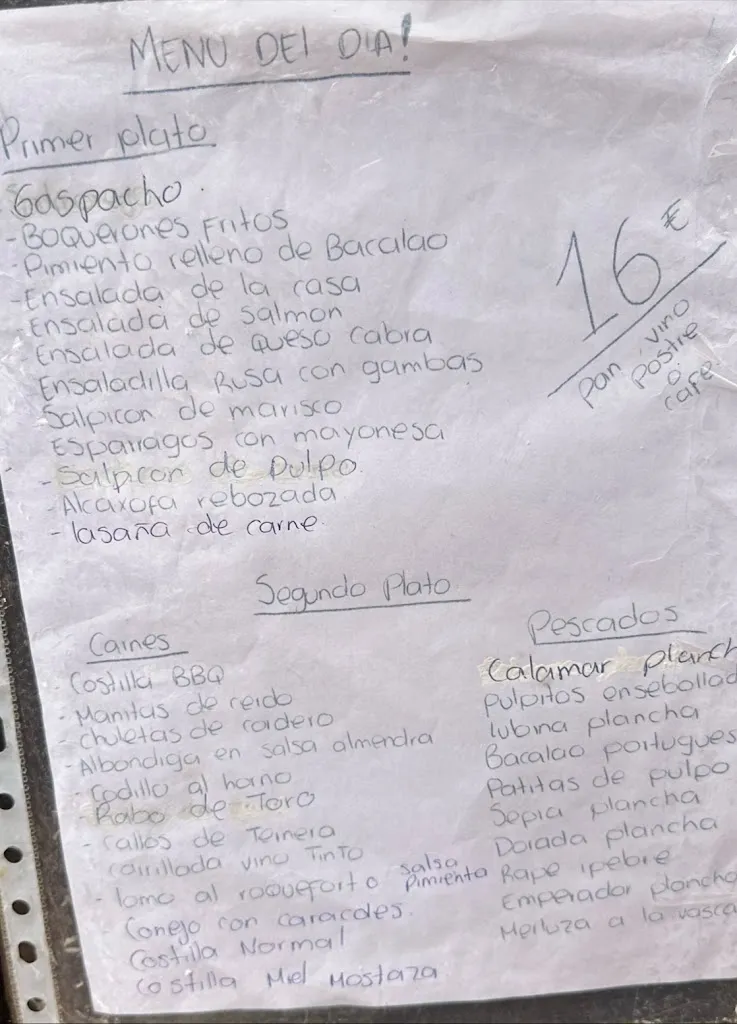 MENU DEl DIA!
Primer plato
Gaspacho.
-BOQUERONES FRITOS
-Pimiento relleno de Bacalao
-Ensalada de la casa
Ensalada de salmon
Ensalada de queso cabra
Ensaladilla Rusa con gambas
Salpicon de marisco
Esparragos con mayonesa
- Salpicon de pulpo.
-Alcaxofa rebozada
- lasaña de carne.
16 €
pan, vino
postre
o
cafe
Segundo Plato
Carnes
- Costilla BBQ
- Manitas de cerdo
- chuletas de cordero
- Albondiga en salsa almendra
- Codillo al horno
- Rabo de Toro
- callos de Ternera
carrillada vino Tinto
- lomo al roqueforto salsa Pimienta
- Conejo con caracoles.
Costilla Normal
costilla Miel Mostaza
Pescados
Calamar planch
pulpitos ensebollad
lubina plancha
Bacalao portugues
Patitas de pulpo
Sepia plancha
Dorada plancha
Rape ipebre
Emperador plancha
Merluza a la vasca